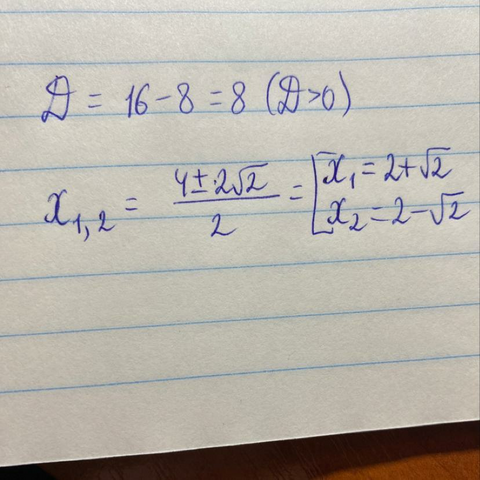 D = 16 - 8 = 8 (D>0)
x₁,₂ = (4 ± 2√2)/2 = [x₁ = 2+√2
x₂ = 2-√2